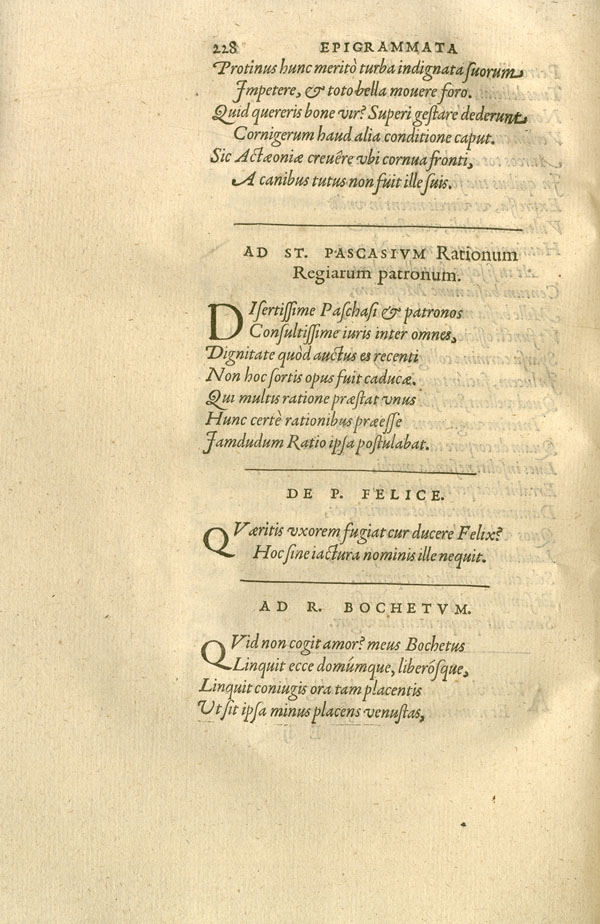 228 EPIGRAMMATA
Protinus hunc meritò turba indignata suorum
Impetere, & toto bella mouere foro.
Quid quereris bone vir? Superi gestare dederunt
Cornigerum haud alia conditione caput.
Sic Actæoniæ creuêre vbi cornua fronti,
A canibus tutus non fuit ille suis.
AD ST. PASCASIVM Rationum
Regiarum patronum.
DIsertissime Paschasi & patronos
Consultissime iuris inter omnes,
Dignitate quòd auctus es recenti
Non hoc sortis opus fuit caducæ.
Qui multis ratione præstat vnus
Hunc certè rationibus præesse
Jamdudum Ratio ipsa postulabat.
DE P. FELICE.
QVæritis vxorem fugiat cur ducere Felix?
Hoc sine iactura nominis ille nequit.
AD R. BOCHETVM.
QVid non cogit amor? meus Bochetus
Linquit ecce domúmque, liberósque,
Linquit coniugis ora tam placentis
Vt sit ipsa minus placens venustas,